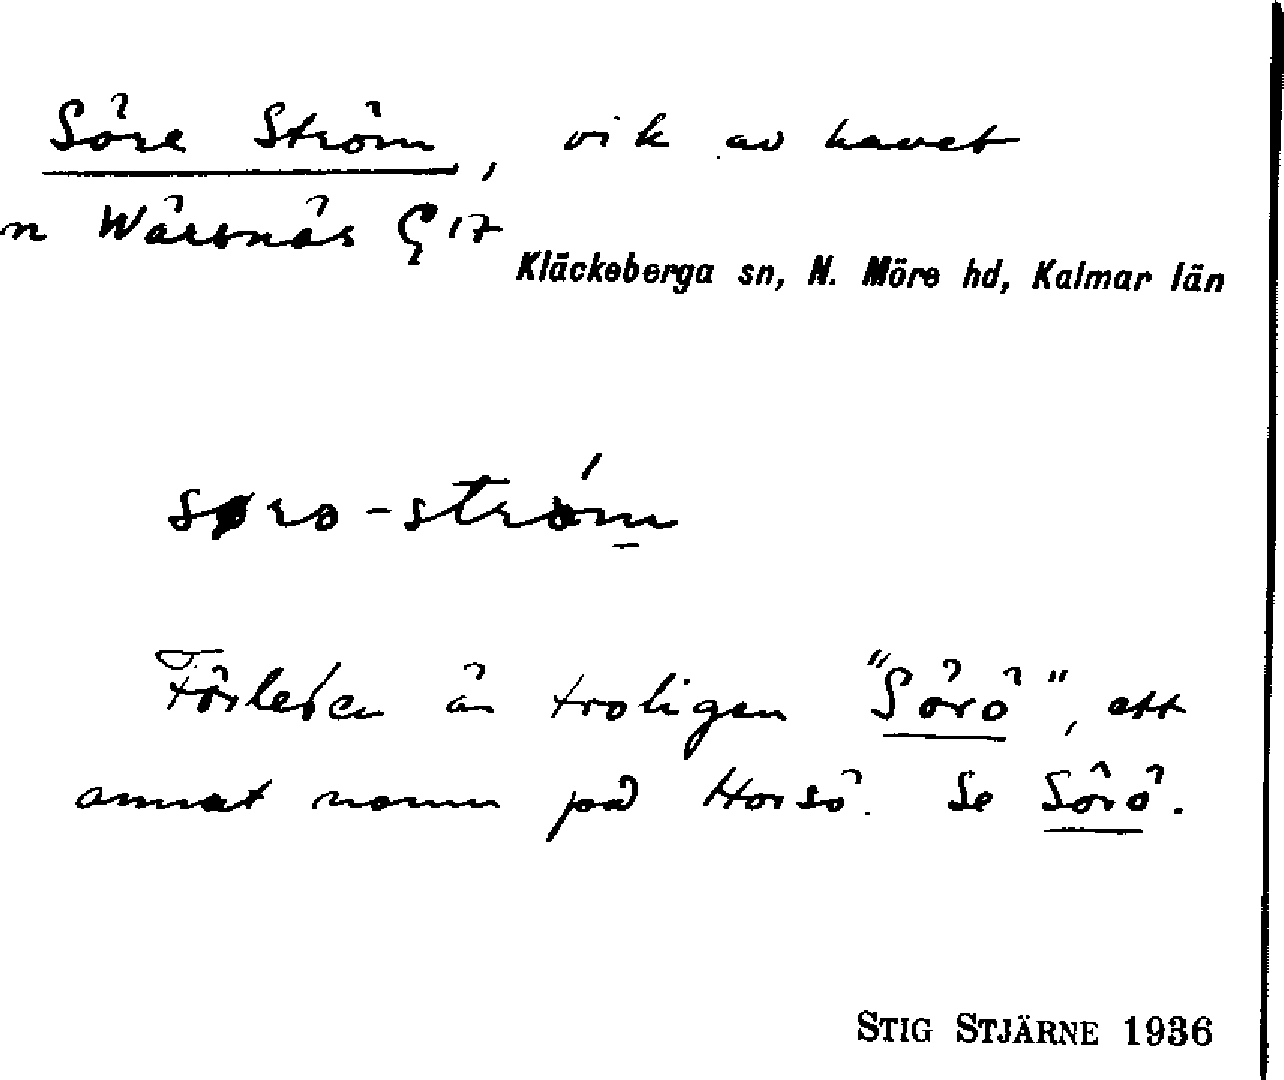 Söre Ström, vik av havet
n Wärsnäs G 17
Kläckeberga sn, N. Möre hd, Kalmar län
søro-ström
Förleden är troligen "Sörö", ett
annat namn på Horsö. Se Sörö.
STIG STJÄRNE 1936